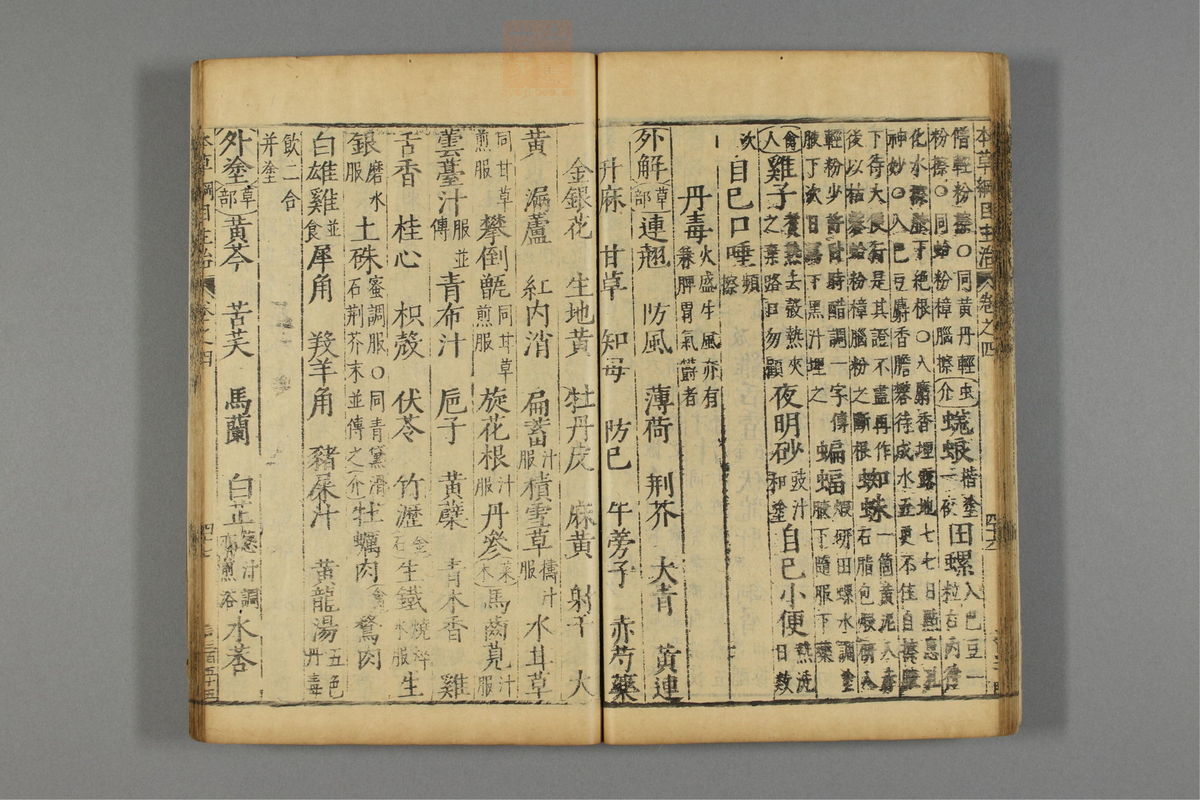 本草綱目主治 卷之四
僧輕粉擦○同黃丹輕粉擦○同蛤粉樟腦擦 介 蟲 蜣蜋 揩塗一夜 田螺 入巴豆一粒在內待
化水擦 絕根○入麝香埋露地七七日點患
神妙○入巴豆麝香膽礬待成水五更不住自
下待大便有是其證不盡再作 蜘蛛 一箇黃泥入
後以枯礬蛤粉樟腦粉之斷根 石脂包
輕粉少許時時醋調一字傅 蝙蝠 煅研田螺水調塗腋下隨服下藥
腋下次日下黑汁埋之
禽人 雞子 煮熟去殼熱夾之棄路口勿顧 夜明砂 豉汁和塗 自己小便 熱洗日數次
自己口唾 頻擦
丹毒 火盛生風亦有兼脾胃氣鬱者
外解 草部 連翹 防風 薄荷 荊芥 大青 黃連
升麻 甘草 知母 防己 牛蒡子 赤芍藥
金銀花 生地黃 牡丹皮 麻黃 射干 大
黃 漏蘆 紅內消 扁蓄 汁服 積雪草 擣汁服 水茸草
同甘草煎服 攀倒甑 同甘草煎服 旋花根 汁服 丹參 菜木 馬齒莧 汁服
蕓薹汁 服並傅 青布汁 巵子 黃蘗 青木香 雞
舌香 桂心 枳殼 伏苓 竹瀝 金石 生鐵 燒淬水服 生
銀 磨水服 土硃 蜜調服○同青黛滑石荊芥末並傅之 介禽 牡蠣肉 鶩肉
白雄雞 並食 犀角 羖羊角 豬屎汁 黃龍湯 五色丹毒
飲二合并塗
外塗 草部 黃芩 苦芙 馬蘭 白芷 葱汁調亦煎浴 水莕
本草綱目主治 卷之四 四七